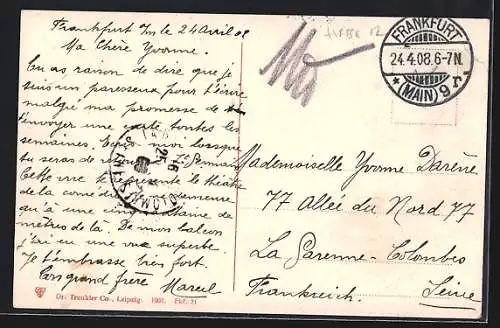 Frankfurt s/m le 24 Avril 08
Ma Chère Yvonne.
Tu as raison de dire que je
suis un paresseux pour t'écrire
malgré ma promesse de
t'envoyer une carte toutes les
semaines. Ecris moi lorsque
tu seras de
Cette vue représente le théâtre
de la comédie
qu'à une cinquantaine de
mètres de là. De mon balcon
j'ai eu une vue superbe.
Je t'embrasse bien fort.
Ton grand frère Marcel
Dr. Trenkler Co., Leipzig. 1907. Fkf. 21
FRANKFURT
24.4.08.6-7N.
*(MAIN) 9 r
Mademoiselle Yvonne Darène
77 Allée du Nord 77
La Garenne-Colombes
Frankreich Seine